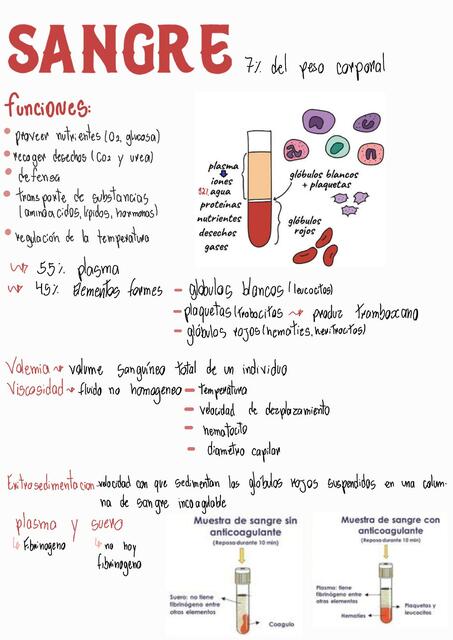 SANGRE 7% del peso corporal
funciones:
proveer nutrientes (O2, glucosa)
recoger desechos (CO2 y urea)
defensa
transporte de substancias
(aminoácidos, lípidos, hormonas)
regulación de la temperatura
plasma
iones
92% agua
proteínas
nutrientes
desechos
gases
glóbulos blancos
+ plaquetas
glóbulos
rojos
55% plasma
45% Elementos formes - glóbulos blancos (leucocitos)
- plaquetas (trobocitos → produz tromboxano
- glóbulos rojos (hematies,
Valemia → volume sanguíneo total de un individuo
Viscosidad → fluido no homogeneo - temperatura
- velocidad de desplazamiento
- hematocito
- diametro capilar
velocidad con que sedimentan los glóbulos rojos suspendidos en una colum-
na de sangre incoagulable
plasma y suero
↳ fibrinogeno ↳ no hay
fibrinogeno
Muestra de sangre sin
anticoagulante
(Reposa durante 10 min)
Suero: no tiene
fibrinógeno entre
otros elementos
Coagulo
Muestra de sangre con
anticoagulante
(Reposa durante 10 min)
Plasma: tiene
fibrinógeno entre
otros elementos
Hematíes
Plaquetas y
leucocitos